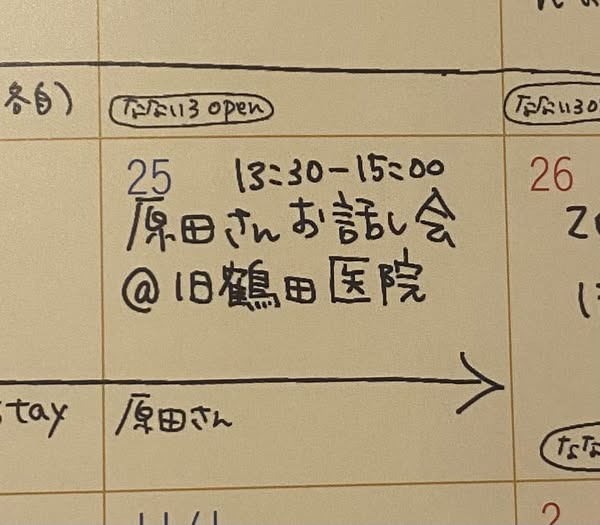 各自)
なないろ open
25 13:30-15:00
26
原田さんお話し会
@旧鶴田医院
stay 原田さん
なな
11/1
2